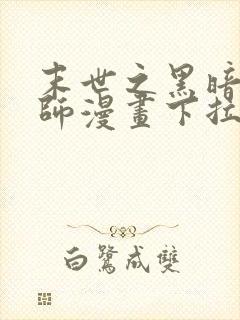 末世之黑暗
師漫畫下拉
白鷺成雙